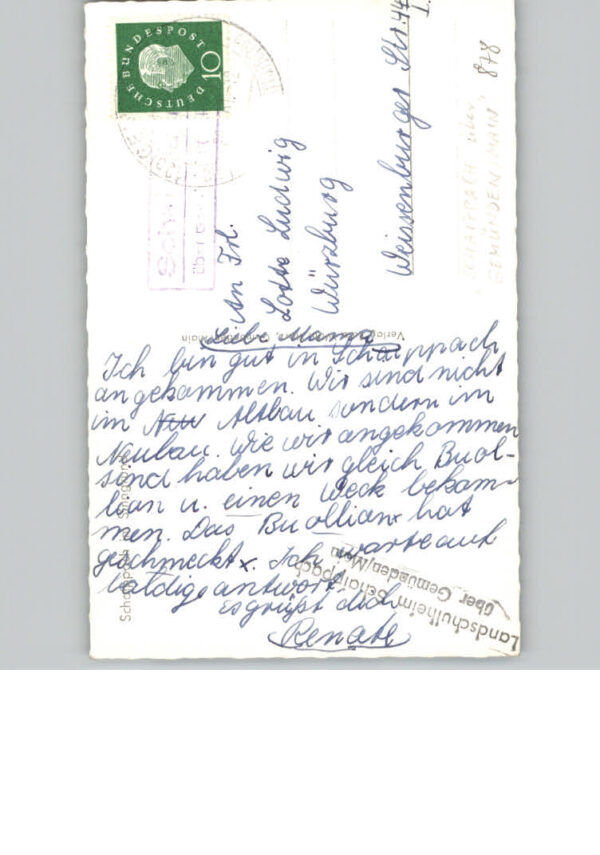 DEUTSCHE BUNDESPOST
10
An Frl.
Lotte Ludwig
Würzburg
Weissenburger Str. 44
I.
878
SCHAIPPACH über
GEMÜNDEN (MAIN)
Liebe Mama
Ich bin gut in Schaippach
angekommen. Wir sind nicht
im Neu Altbau sondern im
Neubau. Wie wir angekommen
sind haben wir gleich Buol-
lian u. einen Weck bekom-
men. Das Buollian hat
geschmeckt. Ich warte auf
baldige antwort
es grüßt dich
Renate
Landschulheim Schaippach
über Gemünden/Main
Verlag
Main